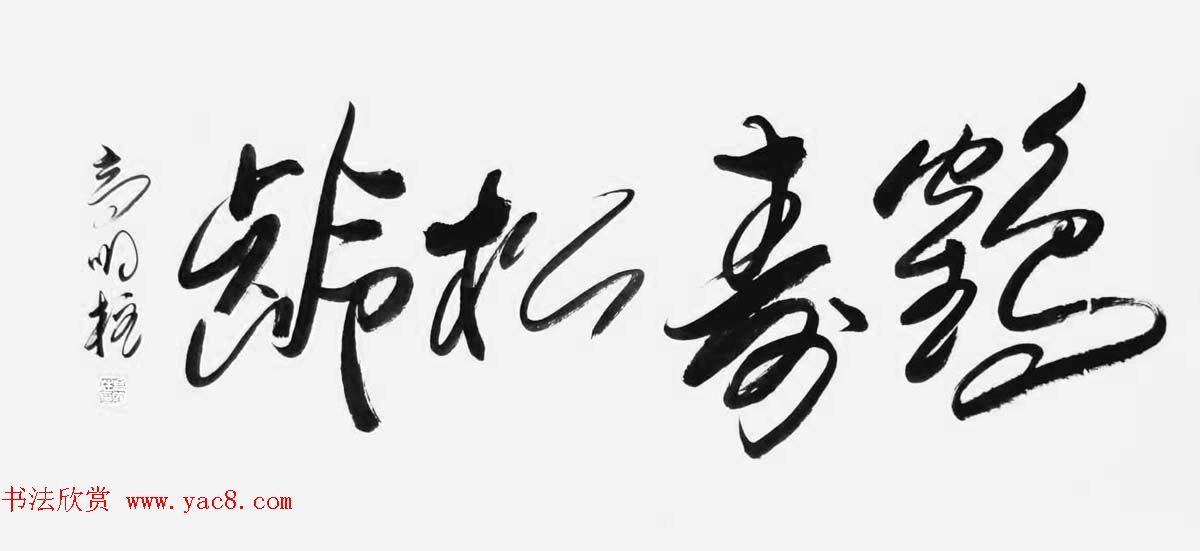 鹤寿松龄
高明柱
书法欣赏 www.yac8.com